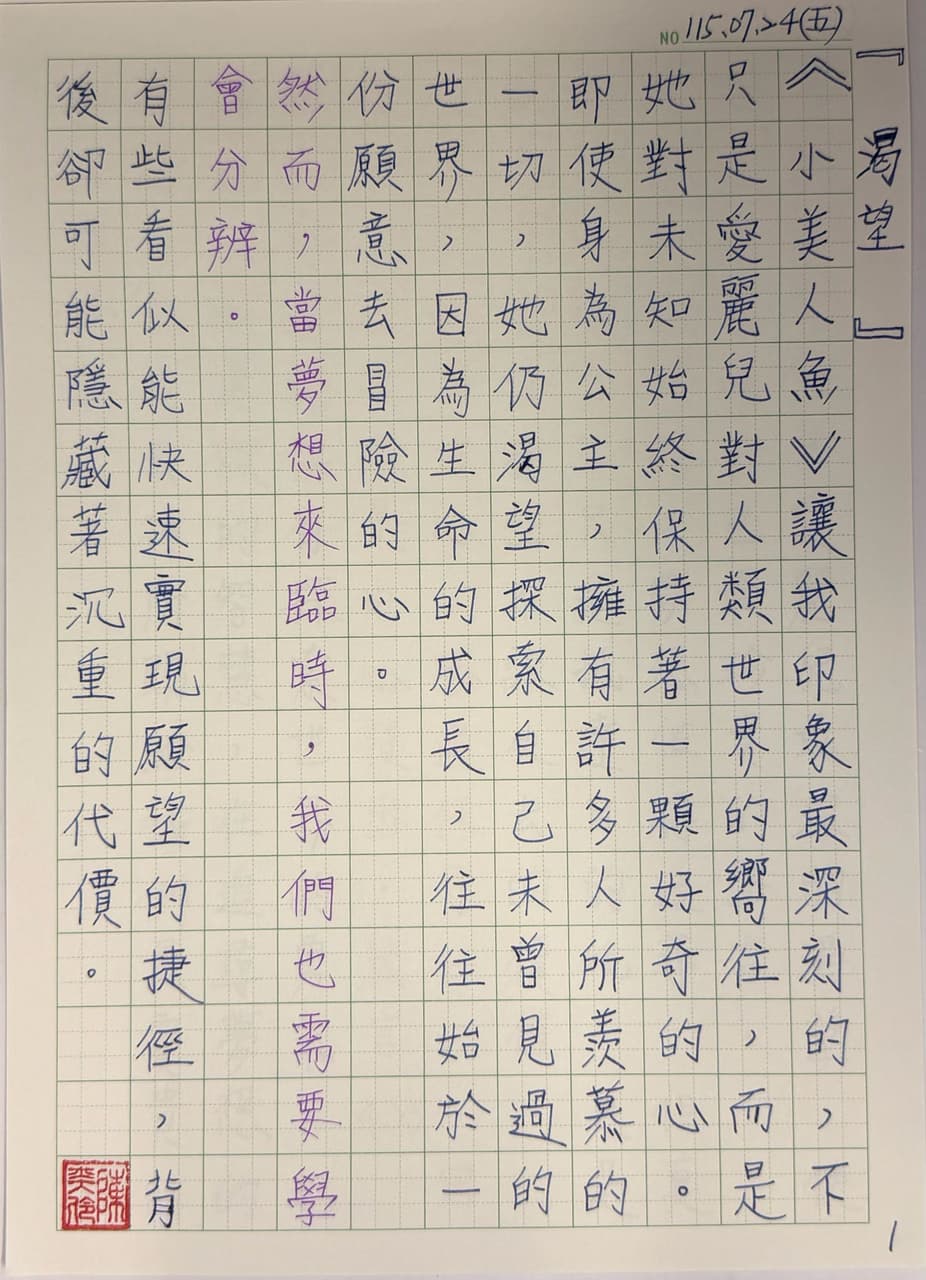 NO 115.07.24(五)
『渴望』
《小美人魚》讓我印象最深刻的，不
只是愛麗兒對人類世界的嚮往，而是
她對未知始終保持著一顆好奇的心。
即使身為公主，擁有許多人所羨慕的
一切，她仍渴望探索自己未曾見過的
世界，因為生命的成長，往往始於一
份願意去冒險的心。
然而，當夢想來臨時，我們也需要學
會分辨。
有些看似能快速實現願望的捷徑，背
後卻可能隱藏著沉重的代價。
1